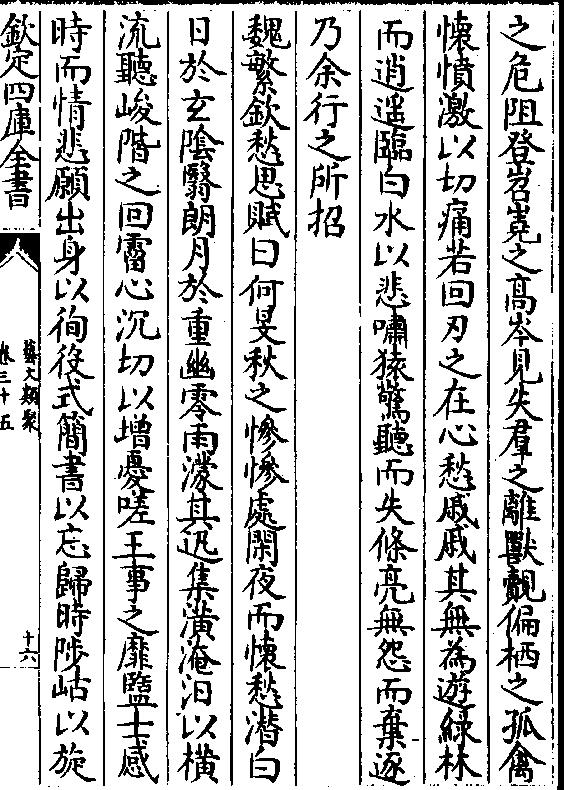 之危阻登岧嶤之高岑見失羣之離獸覿偏栖之孤禽
懷憤激以切痛若回刃之在心愁戚戚其無為遊綠林
而逍遥臨白水以悲嘯猿驚聽而失條亮無怨而棄逐
乃余行之所招
魏繁欽愁思賦曰何旻秋之慘慘處閑夜而懷愁潛白
日於玄陰翳朗月於重幽零雨濛其迅集潢淹汨以横
流聽峻階之回霤心沉切以増憂嗟王事之靡盬士感
時而情悲願出身以徇役式簡書以忘歸時陟岵以旋
欽定四庫全書
藝文類聚
卷三十五
十六